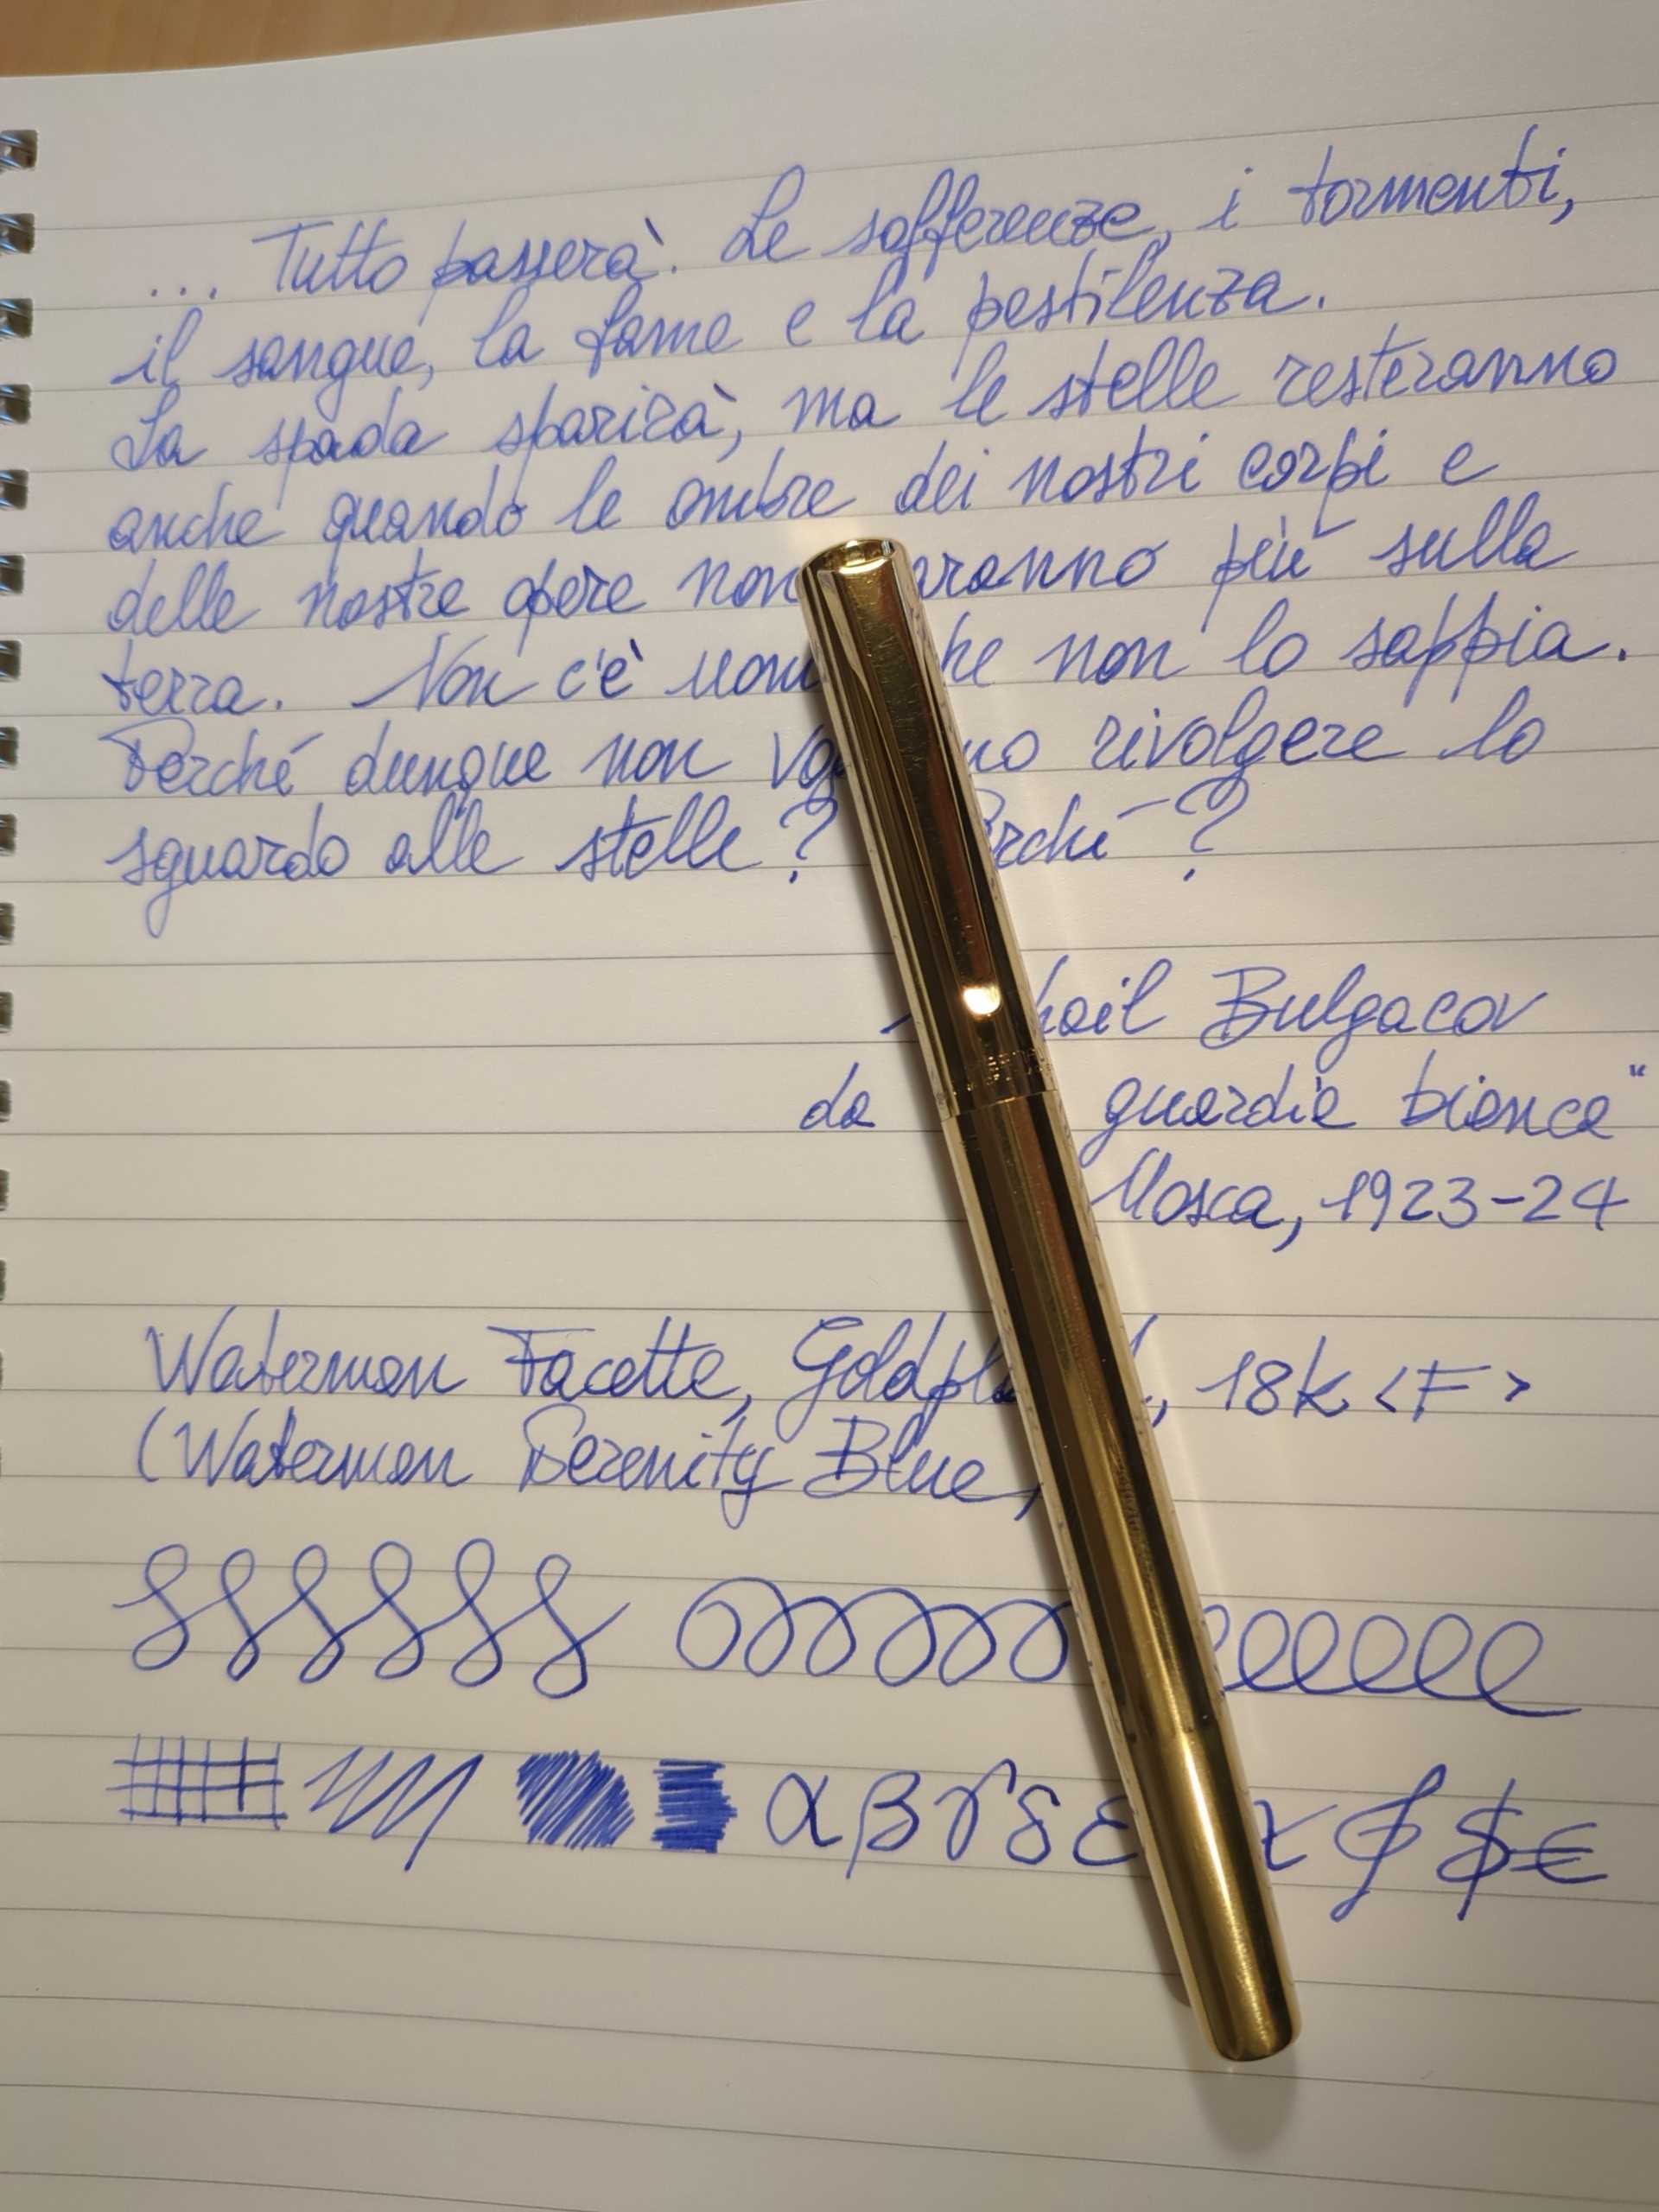 ... Tutto passerà. Le sofferenze, i tormenti,
il sangue, la fame e la pestilenza.
La spada sparirà, ma le stelle resteranno
anche quando le ombre dei nostri corpi e
delle nostre opere non aranno più sulla
terra. Non c'è uom he non lo sappia.
Perché dunque non vog no rivolgere lo
sguardo alle stelle? erché?
hail Bulgacov
da guardia bianca"
Mosca, 1923-24
Waterman Facette, Goldpl d, 18k <F>
(Waterman Serenity Blue,
α β γ δ ε $ €